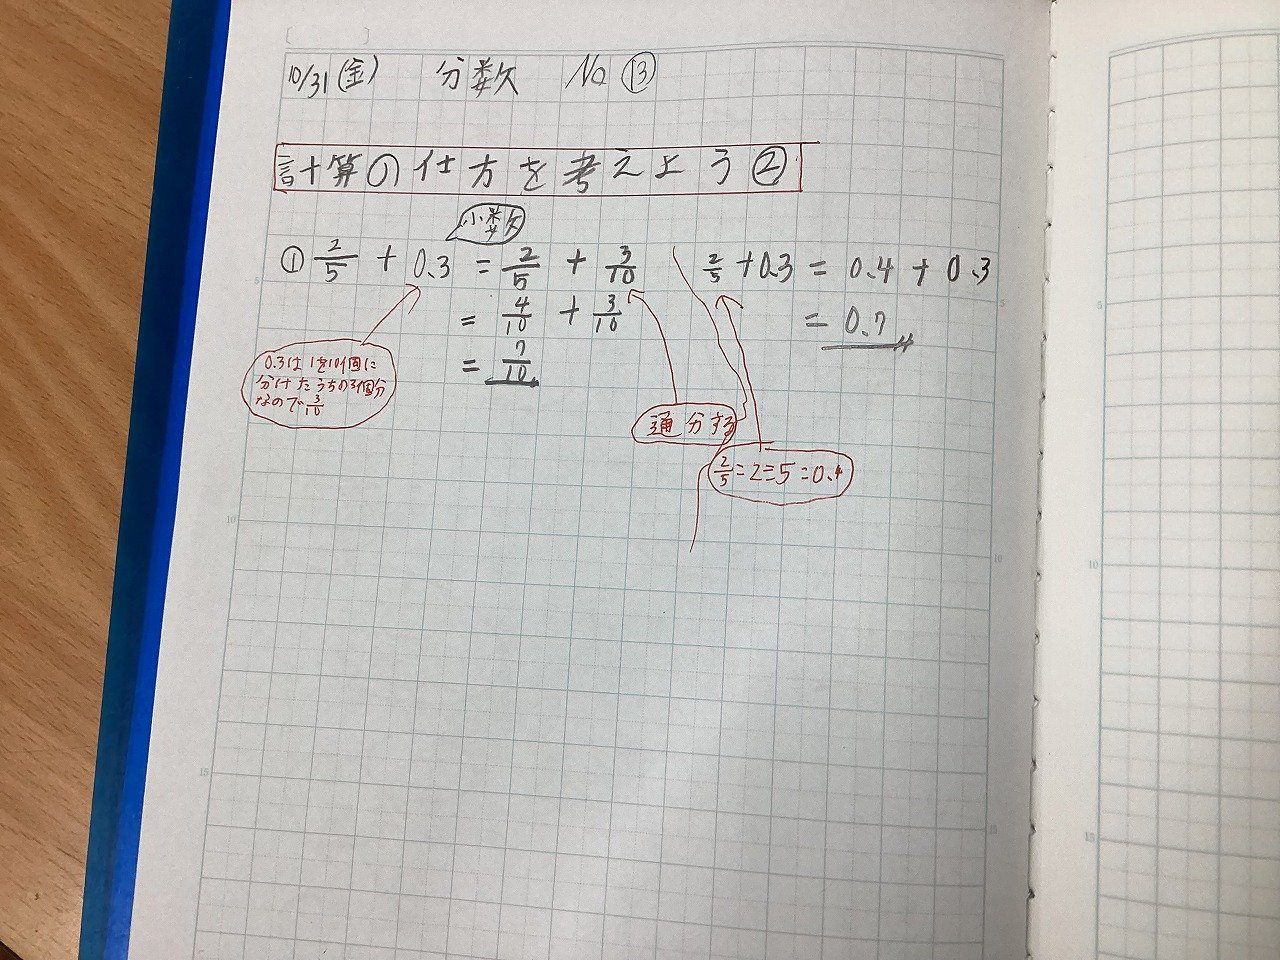 10/31(金) 分数 No ⑬
計算の仕方を考えよう②
小数
① 2/5 + 0.3 = 2/5 + 3/10
= 4/10 + 3/10
= 7/10
0.3は1を10個に
分けたうちの3個分
なので3/10
通分する
2/5 + 0.3 = 0.4 + 0.3
= 0.7
2/5 = 2÷5 = 0.4
5
10
15
5
10
15
5
10
15